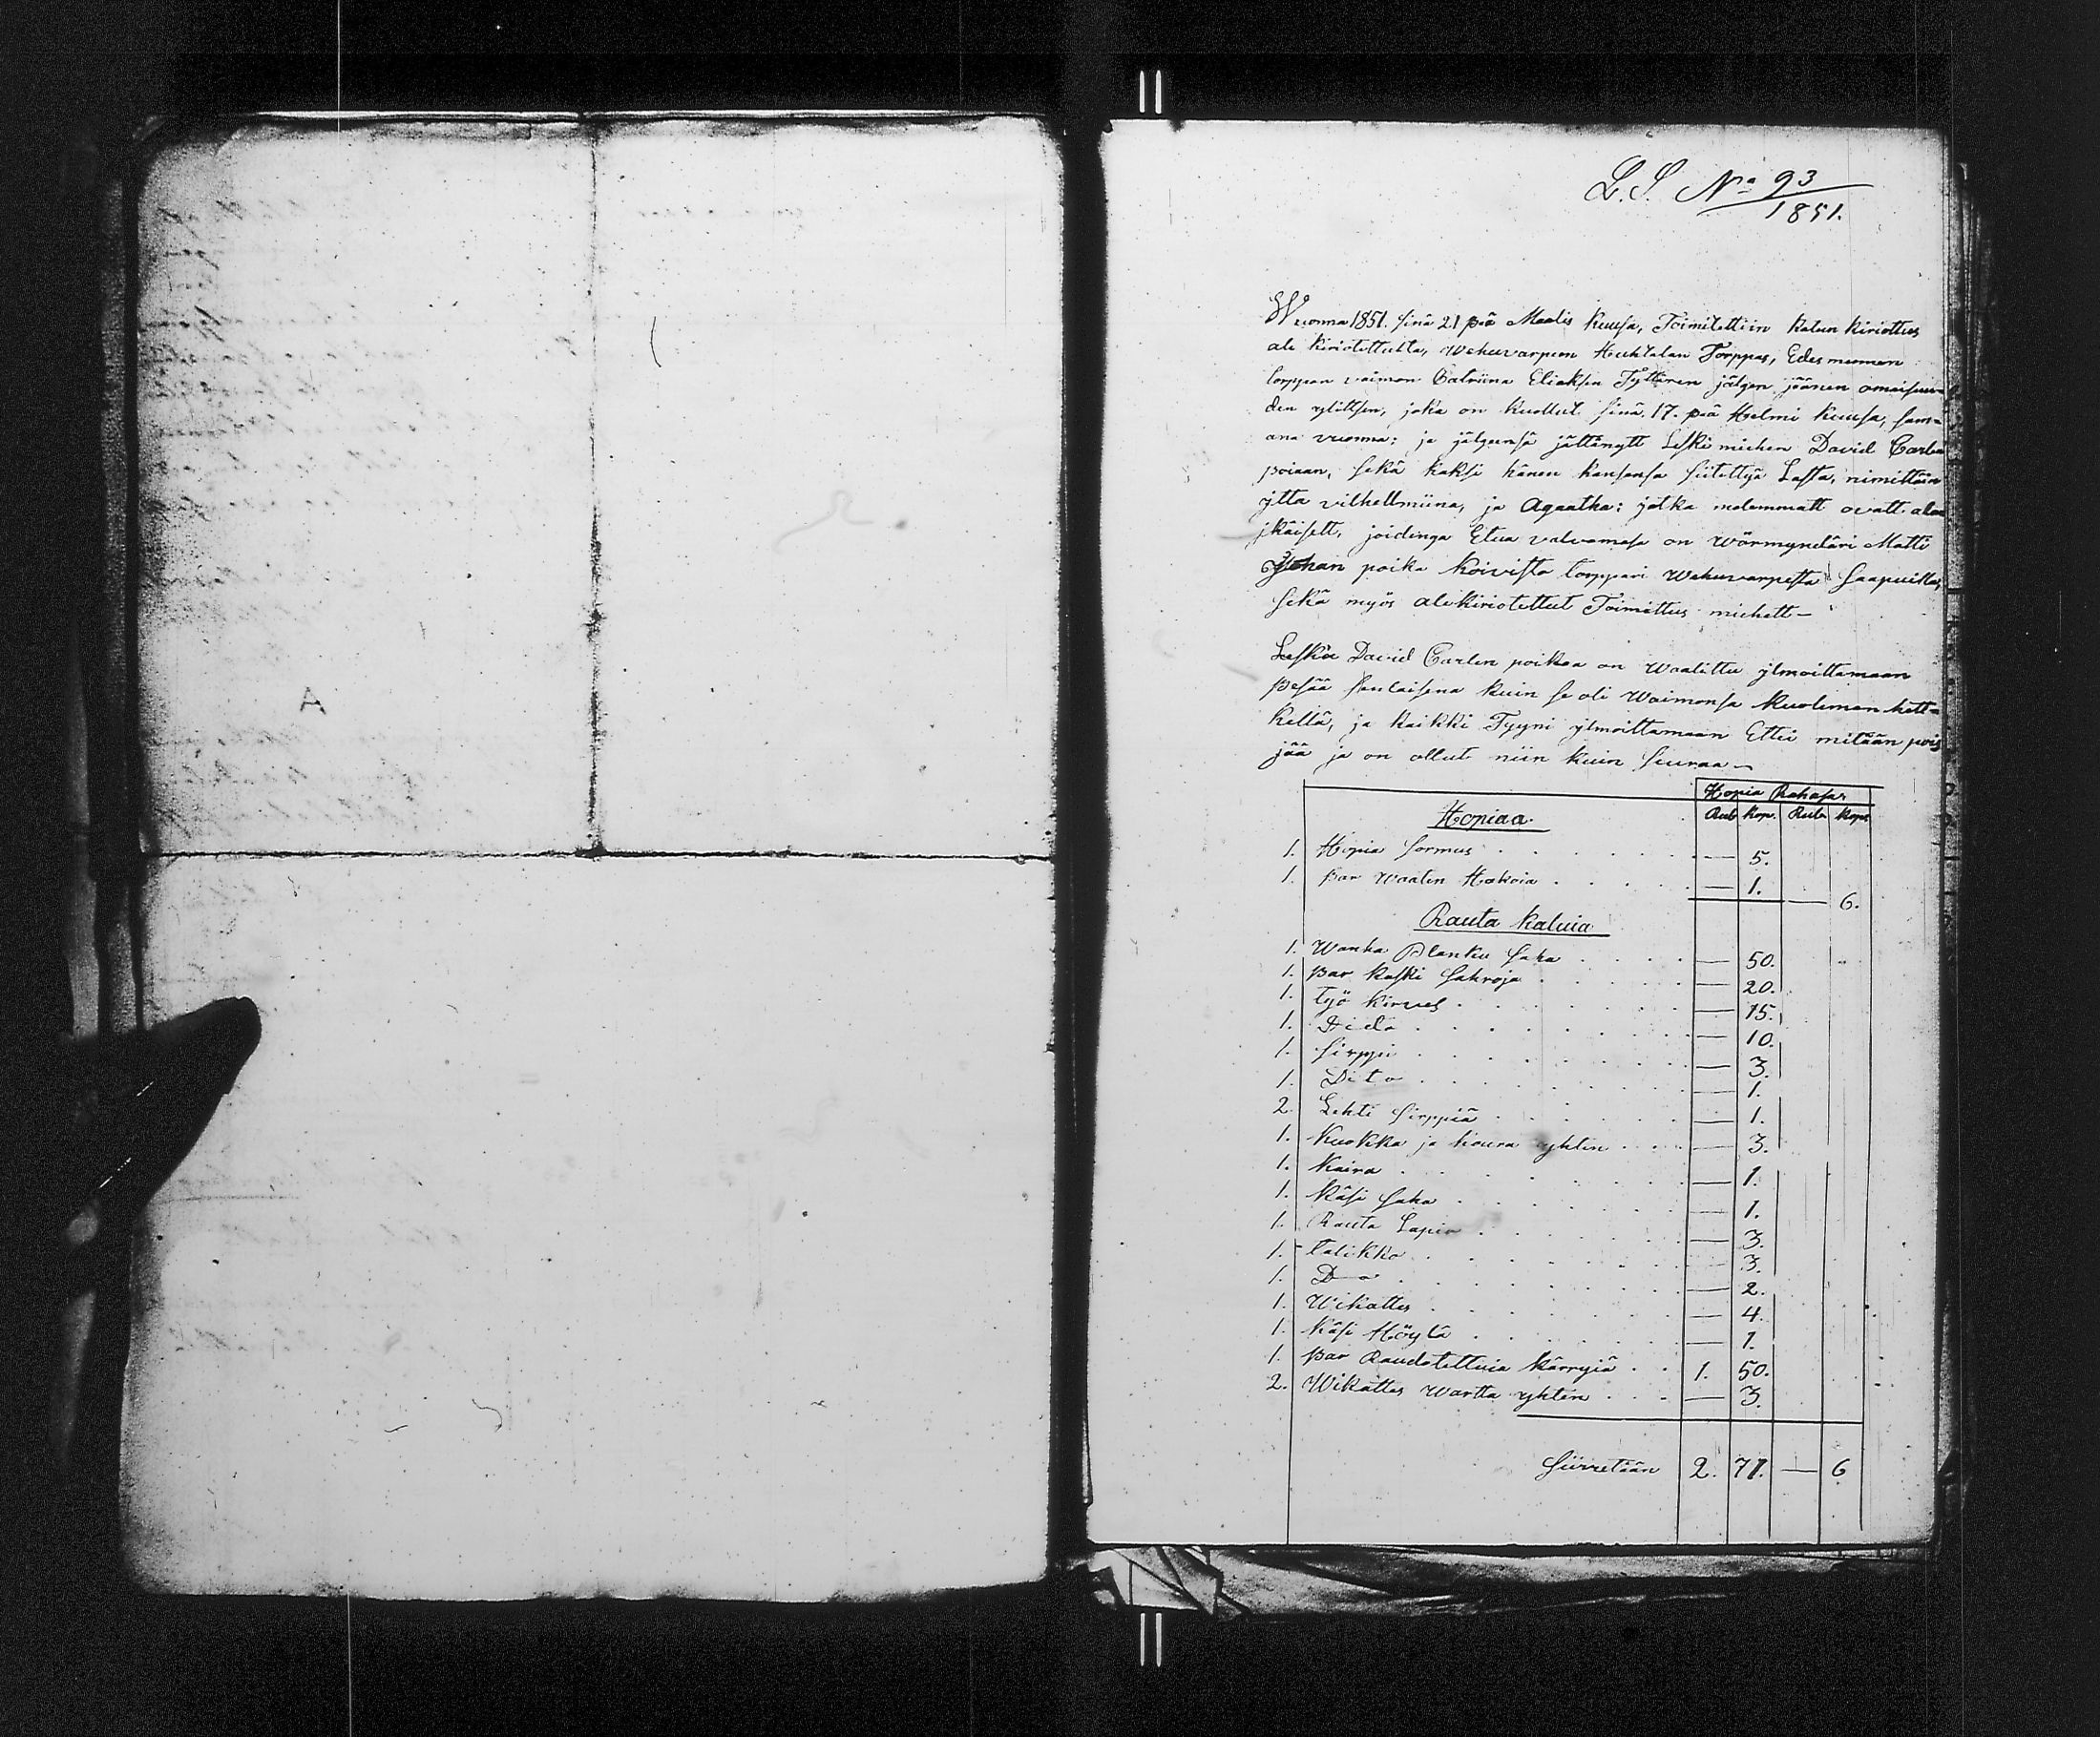 L.S. No 93
1851.
Wuonna 1851. sinä 21 pnä Maalis kuusa, Toimitettiin kalun kiriottus
ale kiriotettuilta, Wehuvarpeen Huhtalan Torppas, Edes mennen
torpparin vaimon Catriina Eliaksen Tyttären jälgen jäänen omaisuu-
den ylittsen, joka on kuollut sinä 17. pnä Helmi kuusa, sam-
ana vuonna: ja jälgensä jättänytt Leski miehen David Carlen
poiaan, sekä kaksi hänen kansansa siitettyä Lasta, nimittäin
ytta vilhellmiina, ja Agaatha: jotka molemmatt ovatt ala
jkäisett, joidenga Etua valvomasa on wärmyndäri Matti
Johan poika Koivisto torppari Wehuvarpesta saapuilla,
sekä myös alekiriotettut Toimittus miehett -
Leskiä David Carlen poikaa on Waalittu ylmoittamaan
pesää senlaisena kuin se oli Waimonsa kuoleman hett-
kellä, ja kaikki Tyyni ylmoittamaan Ettei mitään pois
jää ja on ollut niin kuin seuraa -
Hopia Rahasa
Rub Kop. Rub Kop
Hopiaa.
1. Hopia sormus — 5.
1. par Waaten Hakoia — 1. — 6.
Rauta kaluia
1. Wanha Planku saha — 50.
1. par kaski sahroja — 20.
1. työ kirves — 15.
1. Dido — 10.
1. sirppi — 3.
1. Dito — 1.
2. Lehti sirppiä — 1.
1. kuokka ja houra yhten — 3.
1. kaira — 1.
1. käsi saha — 1.
1. Rauta Lapio — 3.
1. talikko — 3.
1. D—o — 2.
1. Wikattes — 4.
1. käsi Höylä — 1.
1. par Raudotettuia kärryiä 1. 50.
2. Wikattes Wartta yhten — 3.
Siirretään 2. 71. — 6
A